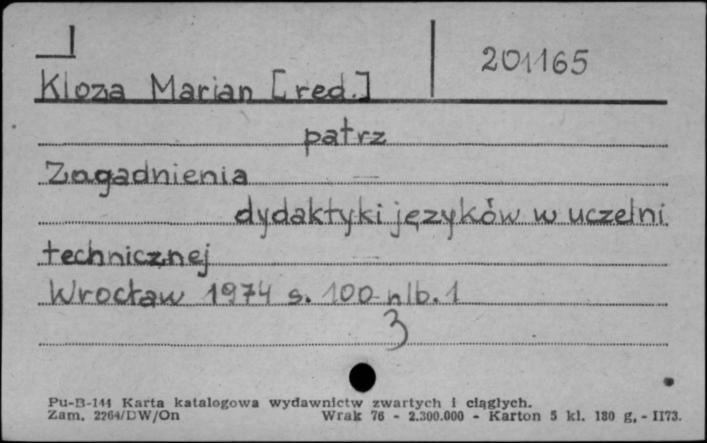 201165
Kloza Marian [red.]
patrz
Zagadnienia
dydaktyki języków w uczelni
technicznej
Wrocław 1974 s. 100 nlb. 1
3
Pu-B-144 Karta katalogowa wydawnictw zwartych i ciągłych.
Zam. 2264/DW/On Wrak 76 - 2.300.000 - Karton 5 kl. 180 g. - II73.